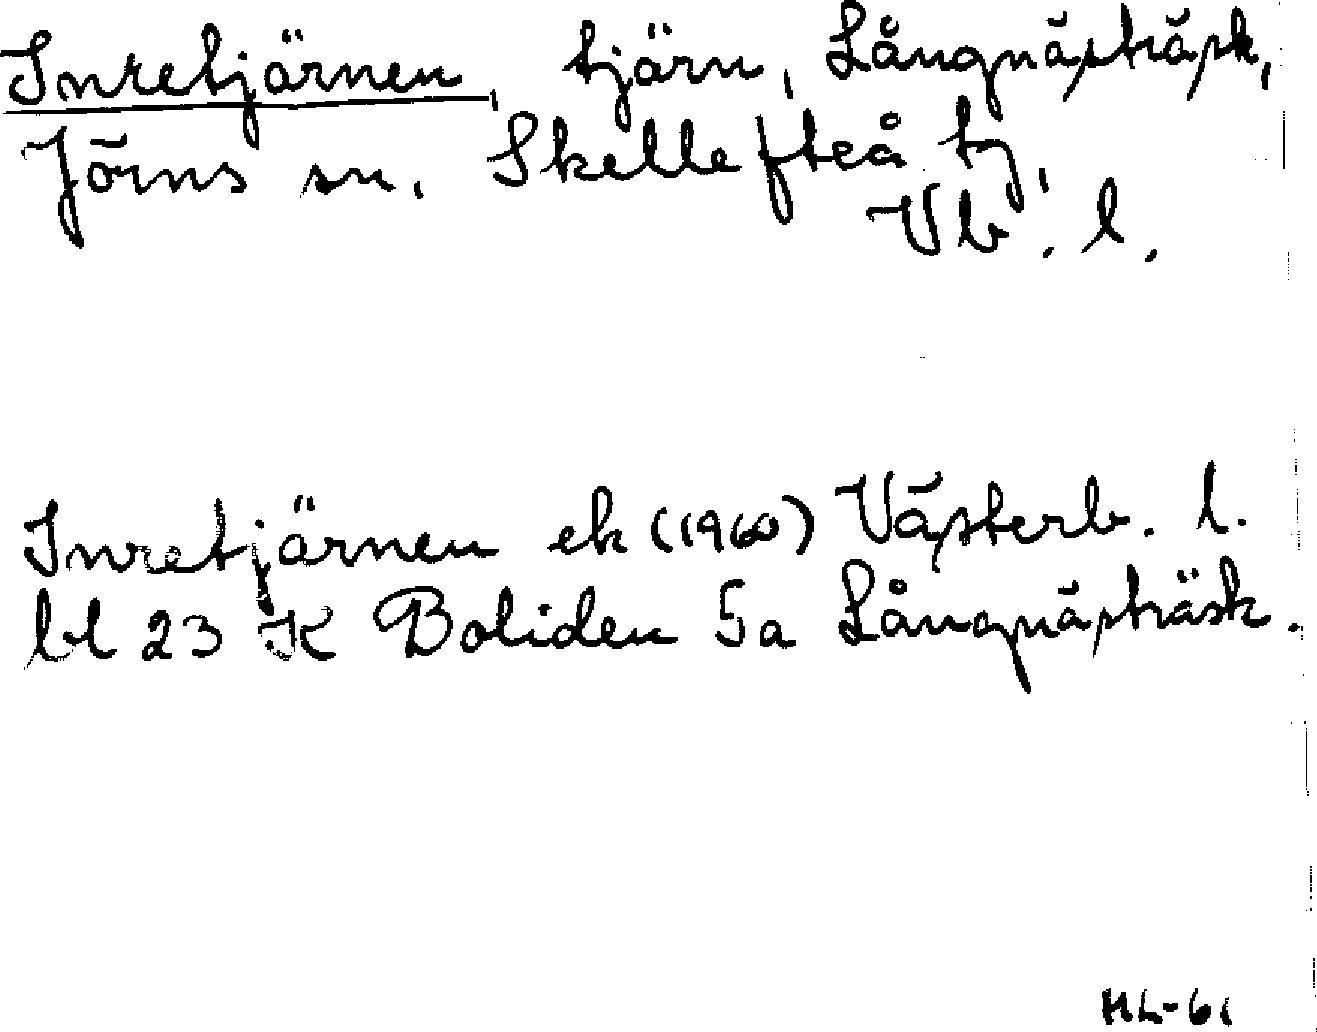 Inretjärnen, tjärn, Långnästräsk,
Jörns sn, Skellefteå tg,
Vb. l.
Inretjärnen ek (1960) Västerb. l.
bl 23 K Boliden 5a Långnästräsk.
HL-61